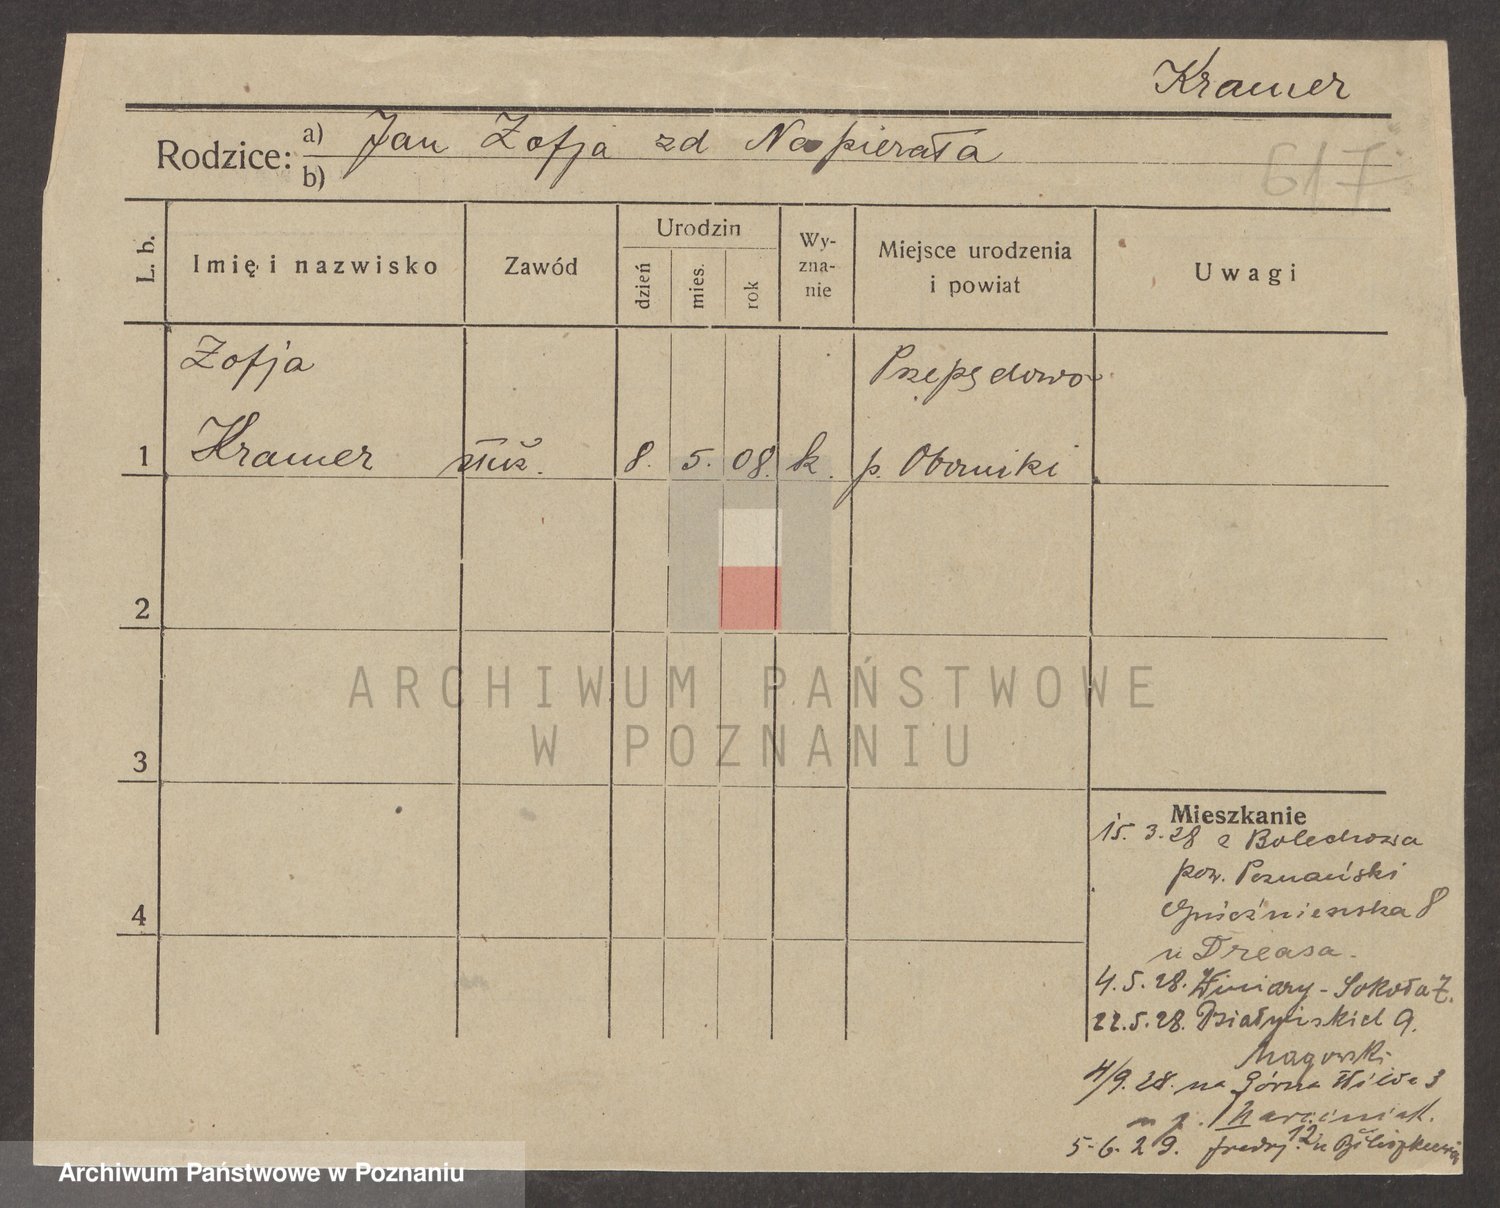 Kramer
Rodzice: a) Jan Zofja zd Napierała
b)
617
L. b.
Imię i nazwisko
Zawód
Urodzin
dzień
mies.
rok
Wy-
zna-
nie
Miejsce urodzenia
i powiat
Uwagi
Zofja
Przepędowo
1 Kramer służ. 8. 5. 08. k. p. Oborniki
2
3
4
ARCHIWUM PAŃSTWOWE
W POZNANIU
Mieszkanie
15. 3. 28 z Bolechowa
pow. Poznański
Gnieźnieńska 8
u Dreasa.
4. 5. 28. Winiary - Sokoła 7.
22. 5. 28. Działyńskich 9.
4/9. 28. na Górna Wilda 3
Marciniak.
5-6. 29. Fredry 12 u
Archiwum Państwowe w Poznaniu